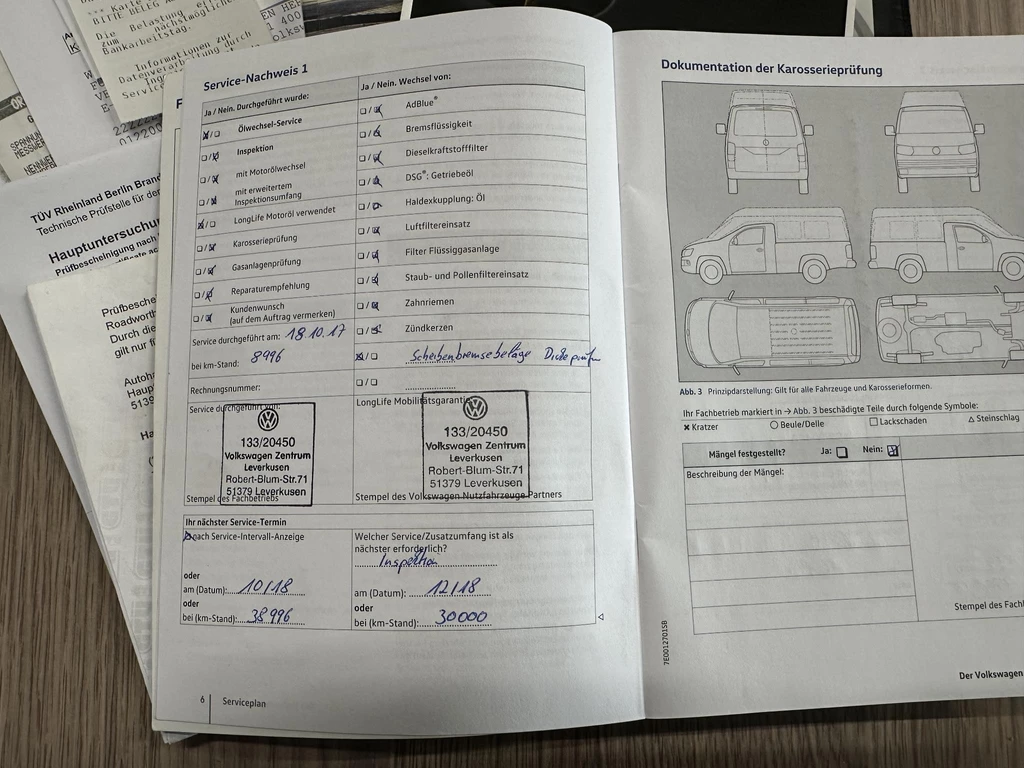 *** Karte
BITTE BELEG
Die Belastung
zum nächstmögliche
Bankarbeitstag.
Informationen zur
Datenverarbeitung durch
SPANNUN
MESSWER
NENNWE
TÜV Rheinland Berlin Brand
Technische Prüfstelle für der
Hauptuntersuchu
Prüfbescheinigung nach
Prüfbesche
Roadwort
Durch die
gilt nur f
Autoh
Haup
5139
Ha
Service-Nachweis 1
Ja / Nein. Durchgeführt wurde:
Ja / Nein. Wechsel von:
Ölwechsel-Service
AdBlue®
Inspektion
Bremsflüssigkeit
mit Motorölwechsel
Dieselkraftstofffilter
mit erweitertem
Inspektionsumfang
DSG®: Getriebeöl
LongLife Motoröl verwendet
Haldexkupplung: Öl
Karosserieprüfung
Luftfiltereinsatz
Gasanlagenprüfung
Filter Flüssiggasanlage
Reparaturempfehlung
Staub- und Pollenfiltereinsatz
Kundenwunsch
(auf dem Auftrag vermerken)
Zahnriemen
Service durchgeführt am: 18.10.17
Zündkerzen
bei km-Stand: 8996
Scheibenbremsebeläge Dicke prüfen
Rechnungsnummer:
Service durchgeführt von:
LongLife Mobilitätsgarantie
133/20450
Volkswagen Zentrum
Leverkusen
Robert-Blum-Str.71
51379 Leverkusen
Stempel des Fachbetriebs
133/20450
Volkswagen Zentrum
Leverkusen
Robert-Blum-Str.71
51379 Leverkusen
Stempel des Volkswagen Nutzfahrzeuge Partners
Ihr nächster Service-Termin
nach Service-Intervall-Anzeige
Welcher Service/Zusatzumfang ist als
nächster erforderlich?
Inspektion
oder
am (Datum): 10/18
am (Datum): 12/18
oder
oder
bei (km-Stand): 38996
bei (km-Stand): 30000
6
Serviceplan
Dokumentation der Karosserieprüfung
Abb. 3 Prinzipdarstellung: Gilt für alle Fahrzeuge und Karosserieformen.
Ihr Fachbetrieb markiert in → Abb. 3 beschädigte Teile durch folgende Symbole:
✖ Kratzer ○ Beule/Delle □ Lackschaden △ Steinschlag
Mängel festgestellt? Ja: Nein:
Beschreibung der Mängel:
Stempel des Fachb
7E0012701SB
Der Volkswagen